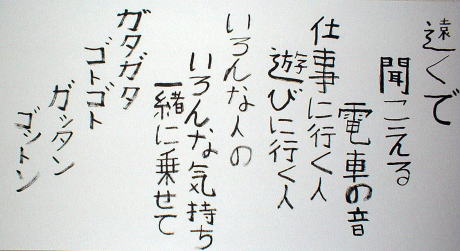 遠くで
聞こえる
電車の音
仕事に行く人
遊びに行く人
いろんな人の
いろんな気持ち
一緒に乗せて
ガタガタ
ゴトゴト
ガッタン
ゴットン